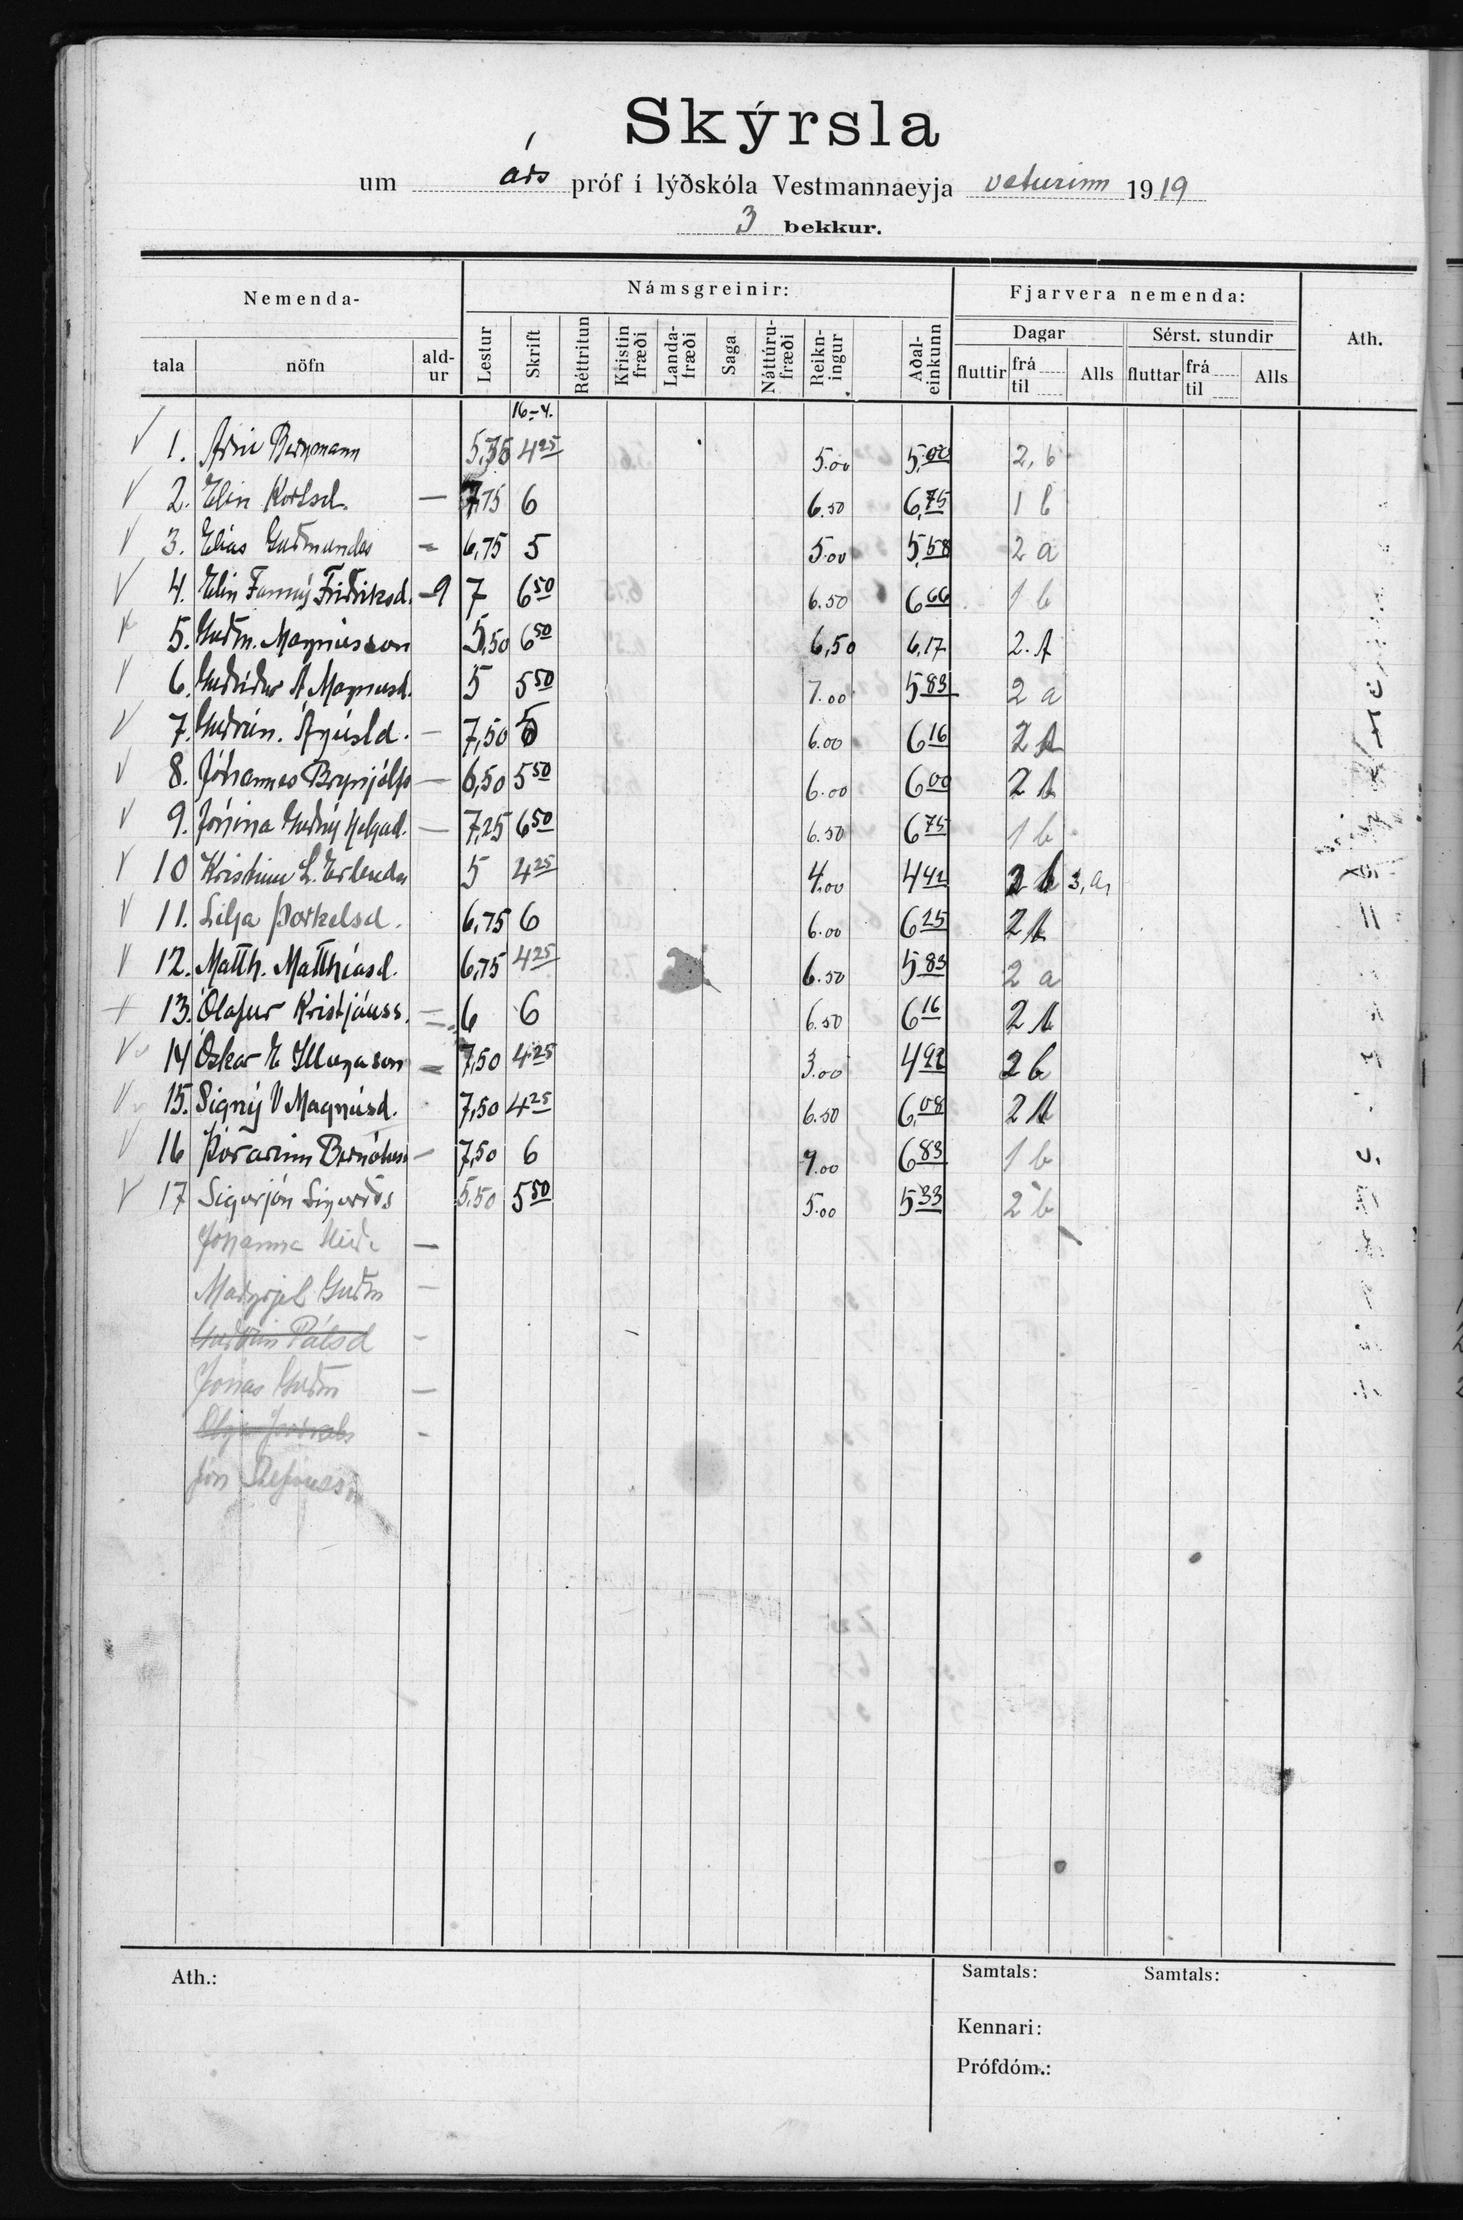 Skýrsla
um árs próf í lýðskóla Vestmannaeyja veturinn 1919
3 bekkur.
Nemenda- Námsgreinir: Fjarvera nemenda: Ath.
tala nöfn ald-ur Lestur Skrift Réttritun Kristin fræði Landa-fræði Saga Náttúru-fræði Reikn-ingur Aðal-einkunn Dagar Sérst. stundir
fluttir frá til Alls fluttar frá til Alls
16-4.
1. Árni Bergmann 5,75 4 25 5.00 5,00 2, b
2. Elin Kortsd. — 7,75 6 6.50 6,75 1 b
3. Elías Guðmundss — 6,75 5 5.00 5,58 2 a
4. Elin Fanný Friðriksd. —9 7 6 50 6.50 6 66 1 b
5. Guðm. Magnússon 5,50 6 50 6,50 6,17 2. A
6. Guðríður Á Magnusd. 5 5 50 7.00 5 83 2 a
7. Guðrún. Ágústd. — 7,50 5 6.00 6 16 2 b
8. Jóhannes Brynjólfs — 6,50 5 50 6.00 6 00 2 b
9. Jónína Guðný Helgad. — 7,25 6 50 6.50 6 75 1 b
10 Kristinn L. Erlends 5 4 25 4.00 4 42 2 b 3, a,
11. Lilja Þorkelsd. 6,75 6 6.00 6 25 2 b
12. Matth. Matthíasd. 6,75 4 25 6.50 5 83 2 a
13. Ólafur Kristjánss. — 6 6 6.50 6 16 2 b
14 Óskar E Illugason — 7,50 4 25 3.00 4 92 2 b
15. Signý V Magnúsd. 7,50 4 25 6.50 6,08 2 b
16 Þórarinn Bernótuss — 7,50 6 7.00 6 83 1 b
17 Sigurjón Sigurðs 5,50 5 50 5.00 5 33 2 b
Jóhanna —
Margrjet Guðm —
Guðrún Pálsd —
Jónas Guðm —
—
Jón Stefánsson
Ath.: Samtals: Samtals:
Kennari:
Prófdóm.: